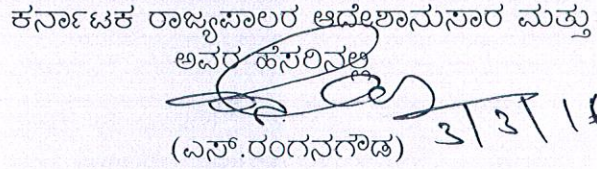 ಕರ್ನಾಟಕ ರಾಜ್ಯಪಾಲರ ಆದೇಶಾನುಸಾರ ಮತ್ತು
ಅವರ ಹೆಸರಿನಲ್ಲಿ
(ಎಸ್.ರಂಗನಗೌಡ) 3/3/1